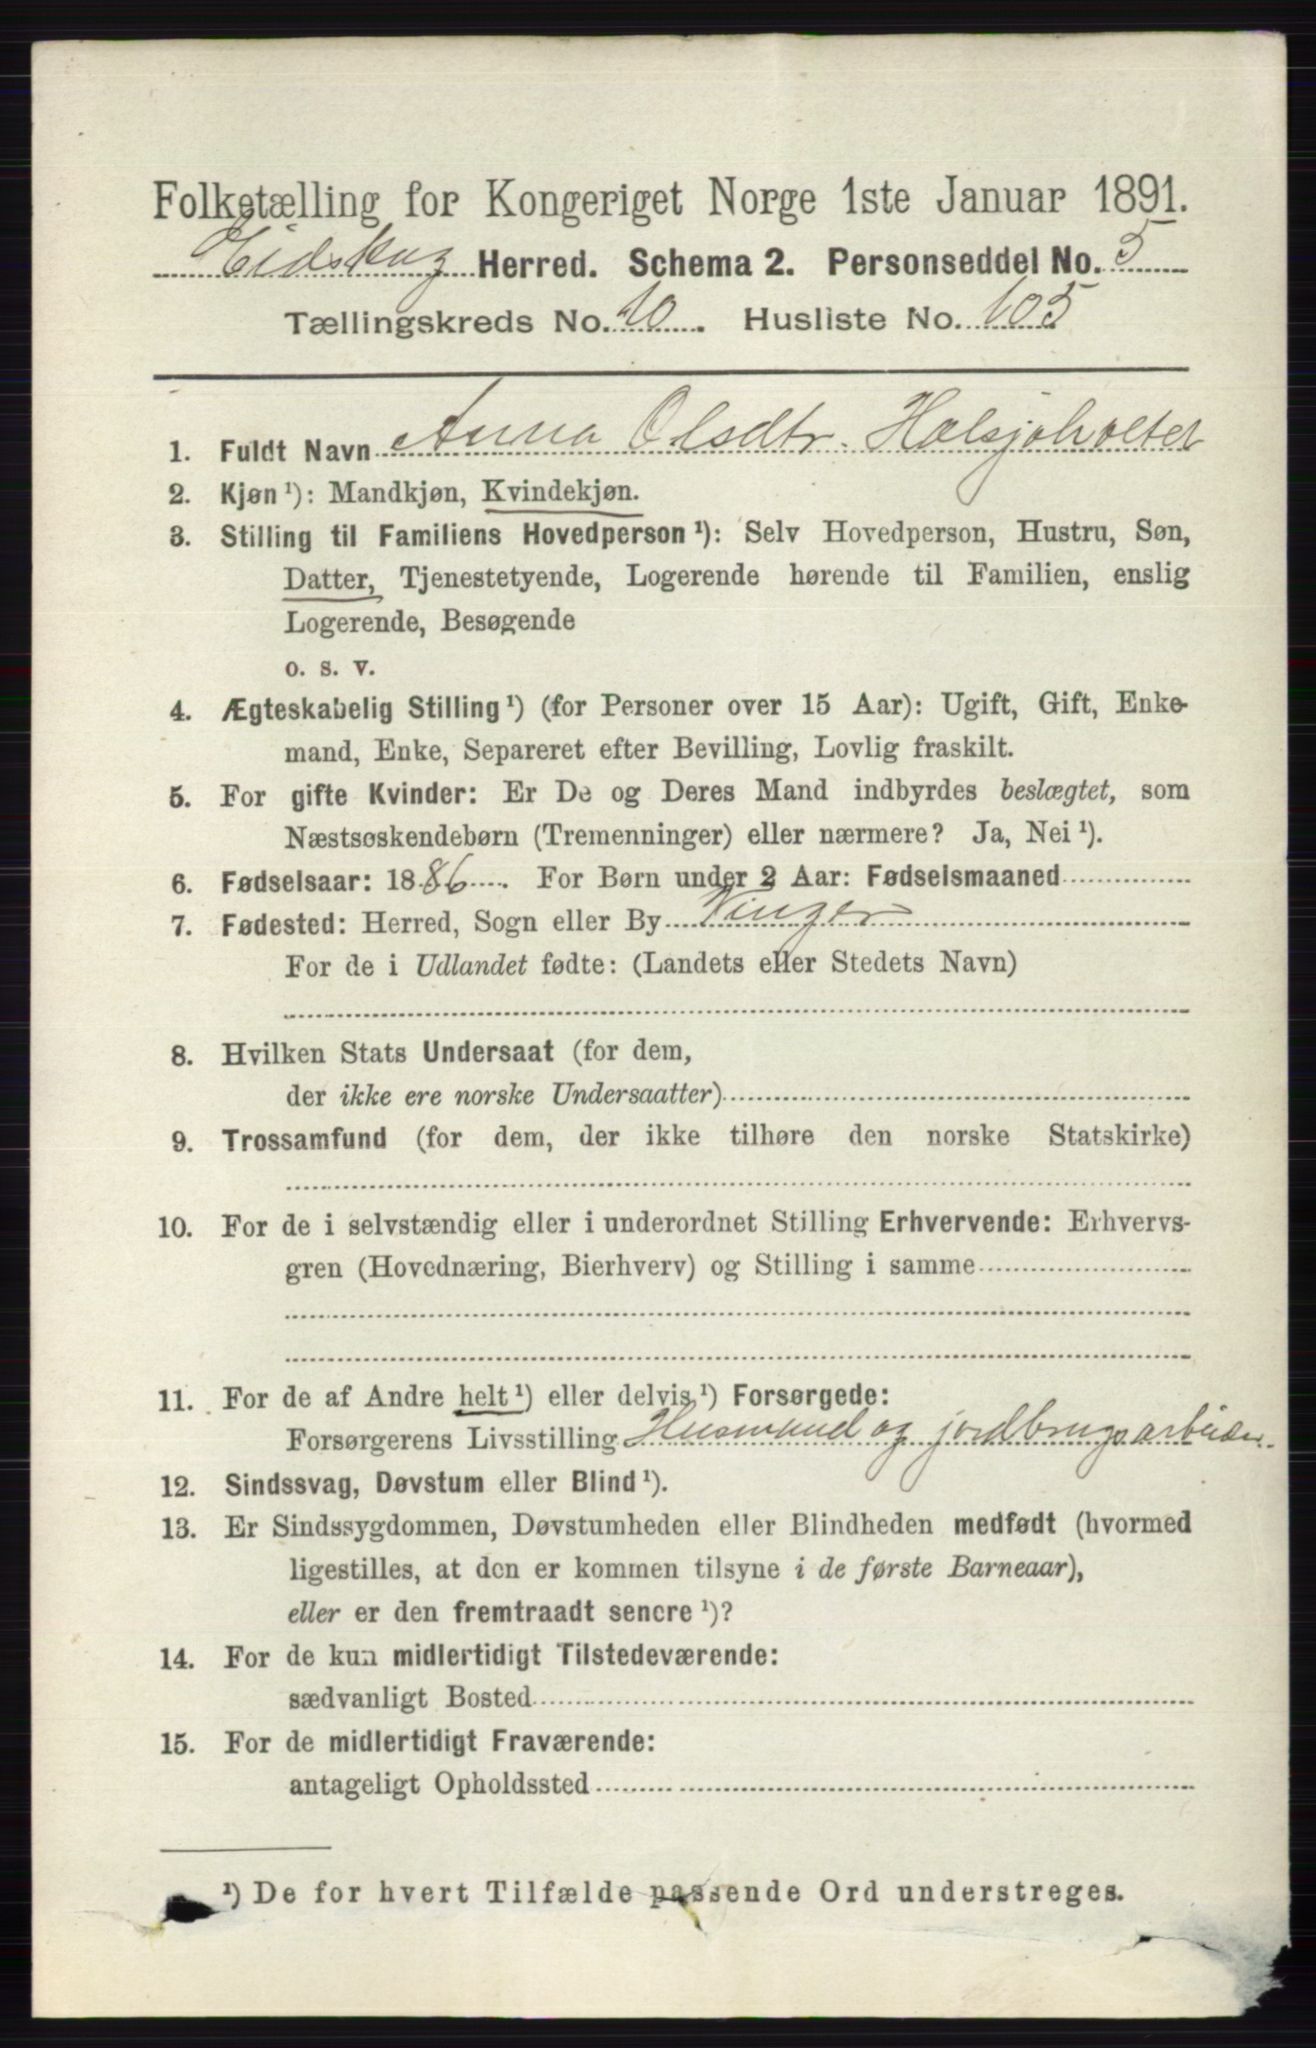 Folketælling for Kongeriget Norge 1ste Januar 1891.
Eidskog Herred. Schema 2. Personseddel No. 5
Tællingskreds No. 10. Husliste No. 105
1. Fuldt Navn Anna Olsdtr. Holsjøholtet
2. Kjøn ¹): Mandkjøn, Kvindekjøn.
3. Stilling til Familiens Hovedperson ¹): Selv Hovedperson, Hustru, Søn,
Datter, Tjenestetyende, Logerende hørende til Familien, enslig
Logerende, Besøgende
o. s. v.
4. Ægteskabelig Stilling ¹) (for Personer over 15 Aar): Ugift, Gift, Enke-
mand, Enke, Separeret efter Bevilling, Lovlig fraskilt.
5. For gifte Kvinder: Er De og Deres Mand indbyrdes beslægtet, som
Næstsøskendebørn (Tremenninger) eller nærmere? Ja, Nei ¹).
6. Fødselsaar: 1886. For Børn under 2 Aar: Fødselsmaaned
7. Fødested: Herred, Sogn eller By Vinger
For de i Udlandet fødte: (Landets eller Stedets Navn)
8. Hvilken Stats Undersaat (for dem,
der ikke ere norske Undersaatter)
9. Trossamfund (for dem, der ikke tilhøre den norske Statskirke)
10. For de i selvstændig eller i underordnet Stilling Erhvervende: Erhvervs-
gren (Hovednæring, Bierhverv) og Stilling i samme
11. For de af Andre helt ¹) eller delvis ¹) Forsørgede:
Forsørgerens Livsstilling Husmand og jordbrugsarbeider.
12. Sindssvag, Døvstum eller Blind ¹).
13. Er Sindssygdommen, Døvstumheden eller Blindheden medfødt (hvormed
ligestilles, at den er kommen tilsyne i de første Barneaar),
eller er den fremtraadt senere ¹)?
14. For de kun midlertidigt Tilstedeværende:
sædvanligt Bosted
15. For de midlertidigt Fraværende:
antageligt Opholdssted
¹) De for hvert Tilfælde passende Ord understreges.